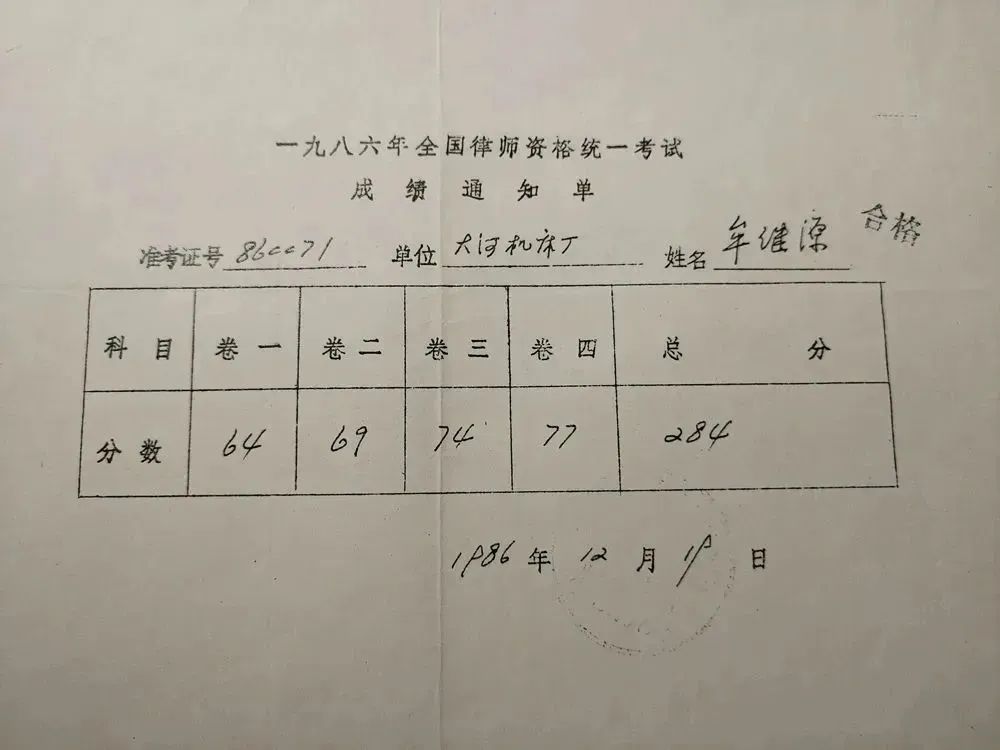 一九八六年全国律师资格统一考试
成绩通知单
准考证号 860071 单位 大河机床厂 姓名 牟维源 合格
科目 卷一 卷二 卷三 卷四 总分
分数 64 69 74 77 284
1986年12月19日